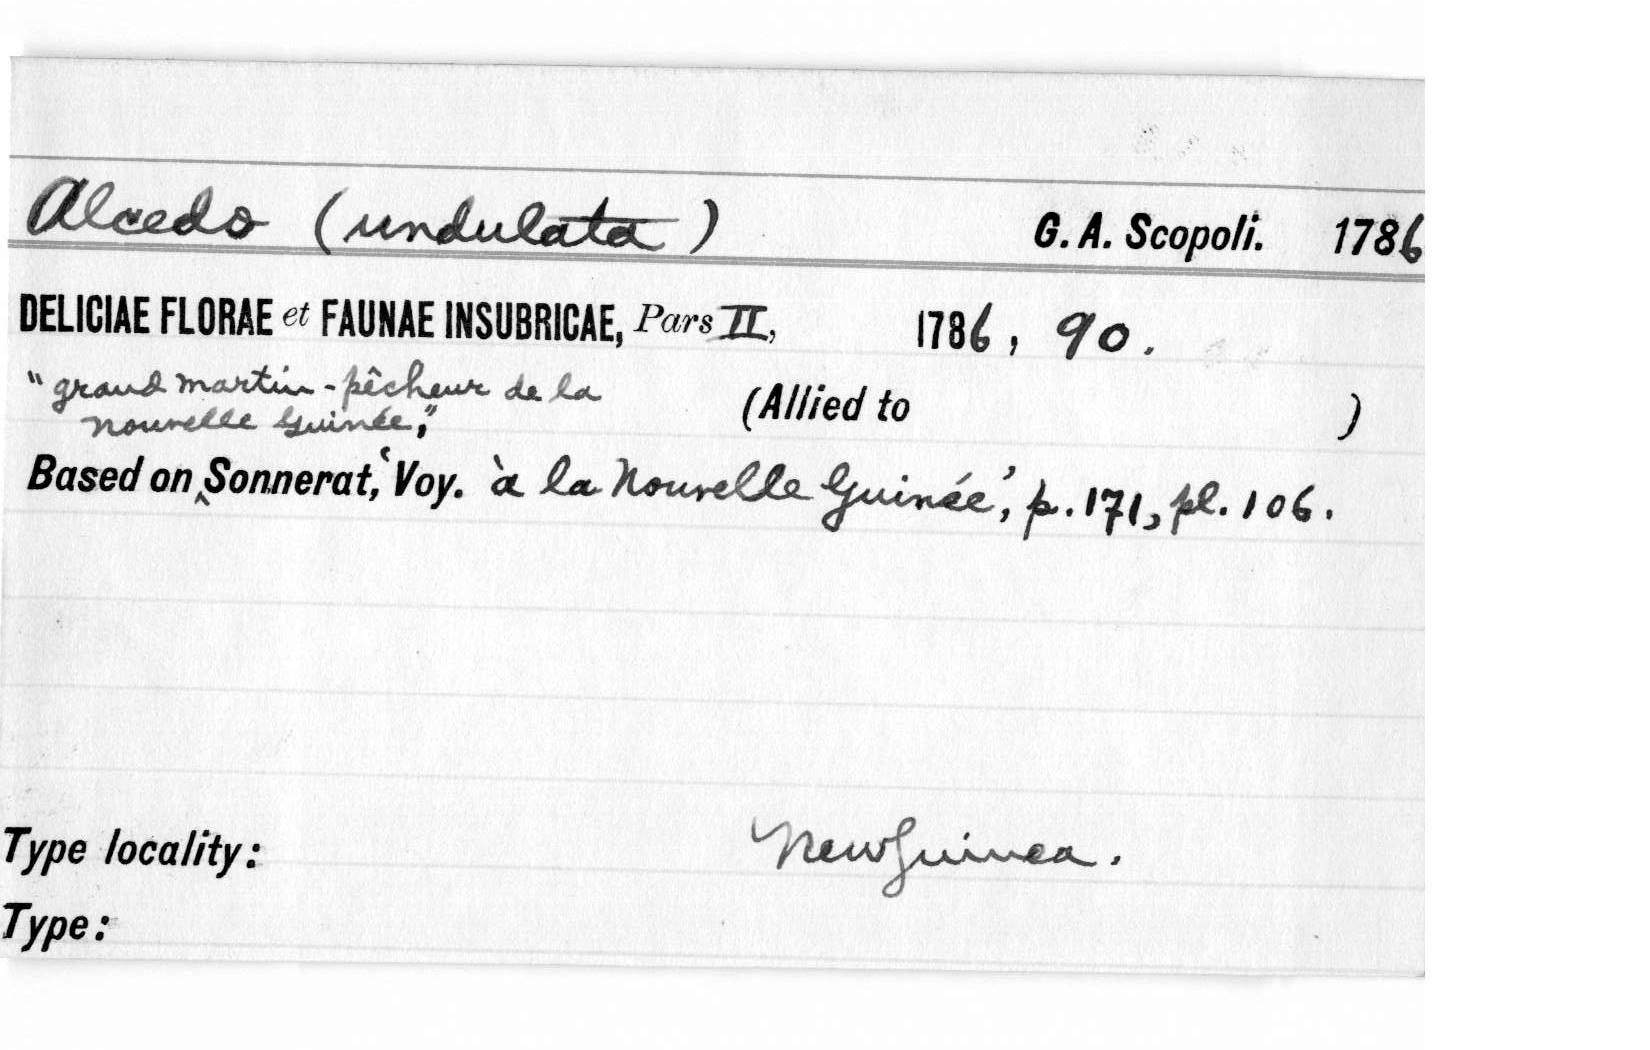 Alcedo (undulata) G. A. Scopoli. 1786
DELICIAE FLORAE et FAUNAE INSUBRICAE, Pars II, 1786, 90.
"grand martin-pêcheur de la
nouvelle Guinée," (Allied to )
Based on ‸ Sonnerat, 'Voy. à la Nouvelle Guinée', p. 171, pl. 106.
Type locality: New Guinea.
Type: